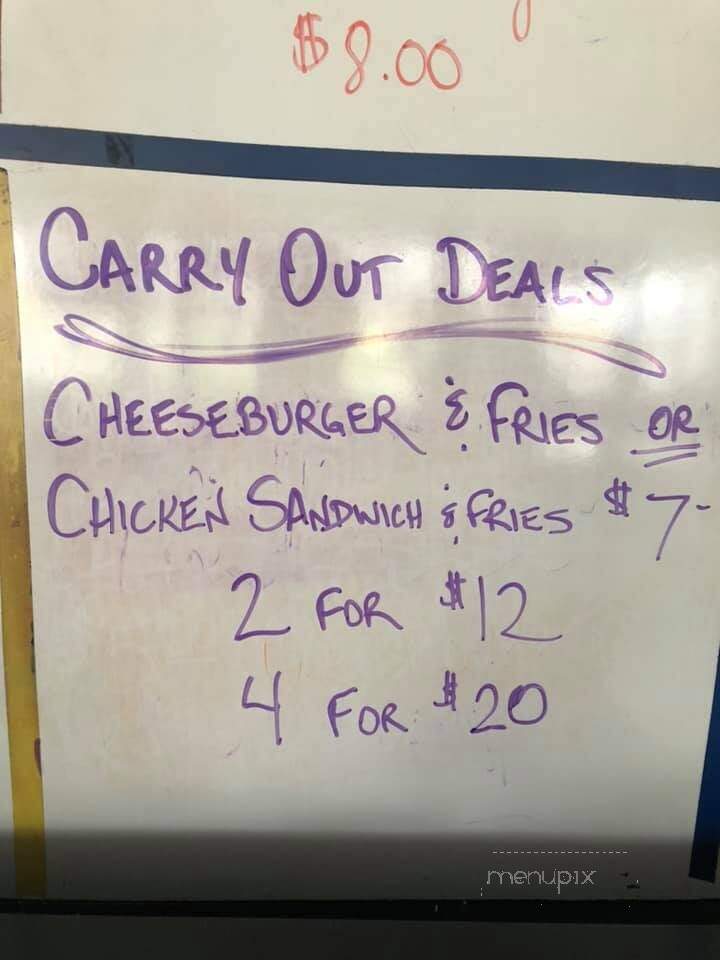 $8.00
CARRY OUT DEALS
CHEESEBURGER & FRIES OR
CHICKEN SANDWICH & FRIES $7-
2 FOR $12
4 FOR $20
menupix